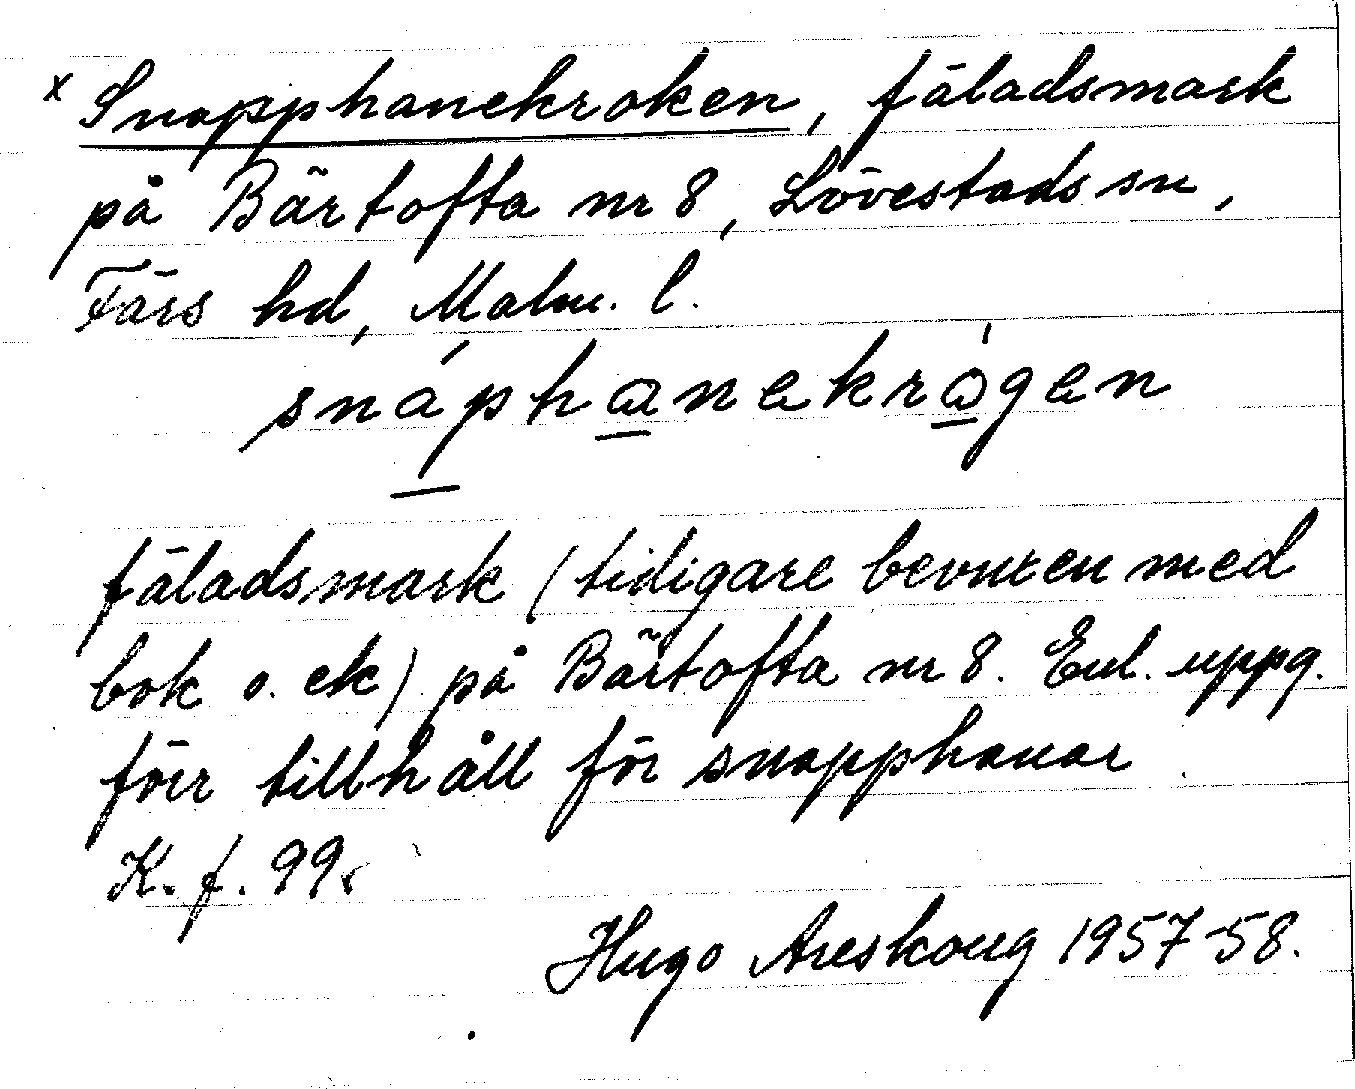 x Snapphanekroken, fäladsmark
på Bärtofta nr 8, Lövestads sn,
Färs hd, Malm. l.
snáphanekrågen
fäladsmark (tidigare bevuxen med
bok o. ek) på Bärtofta nr 8. Enl. uppg.
förr tillhåll för snapphanar
K. f. 99.
Hugo Areskoug 1957-58.